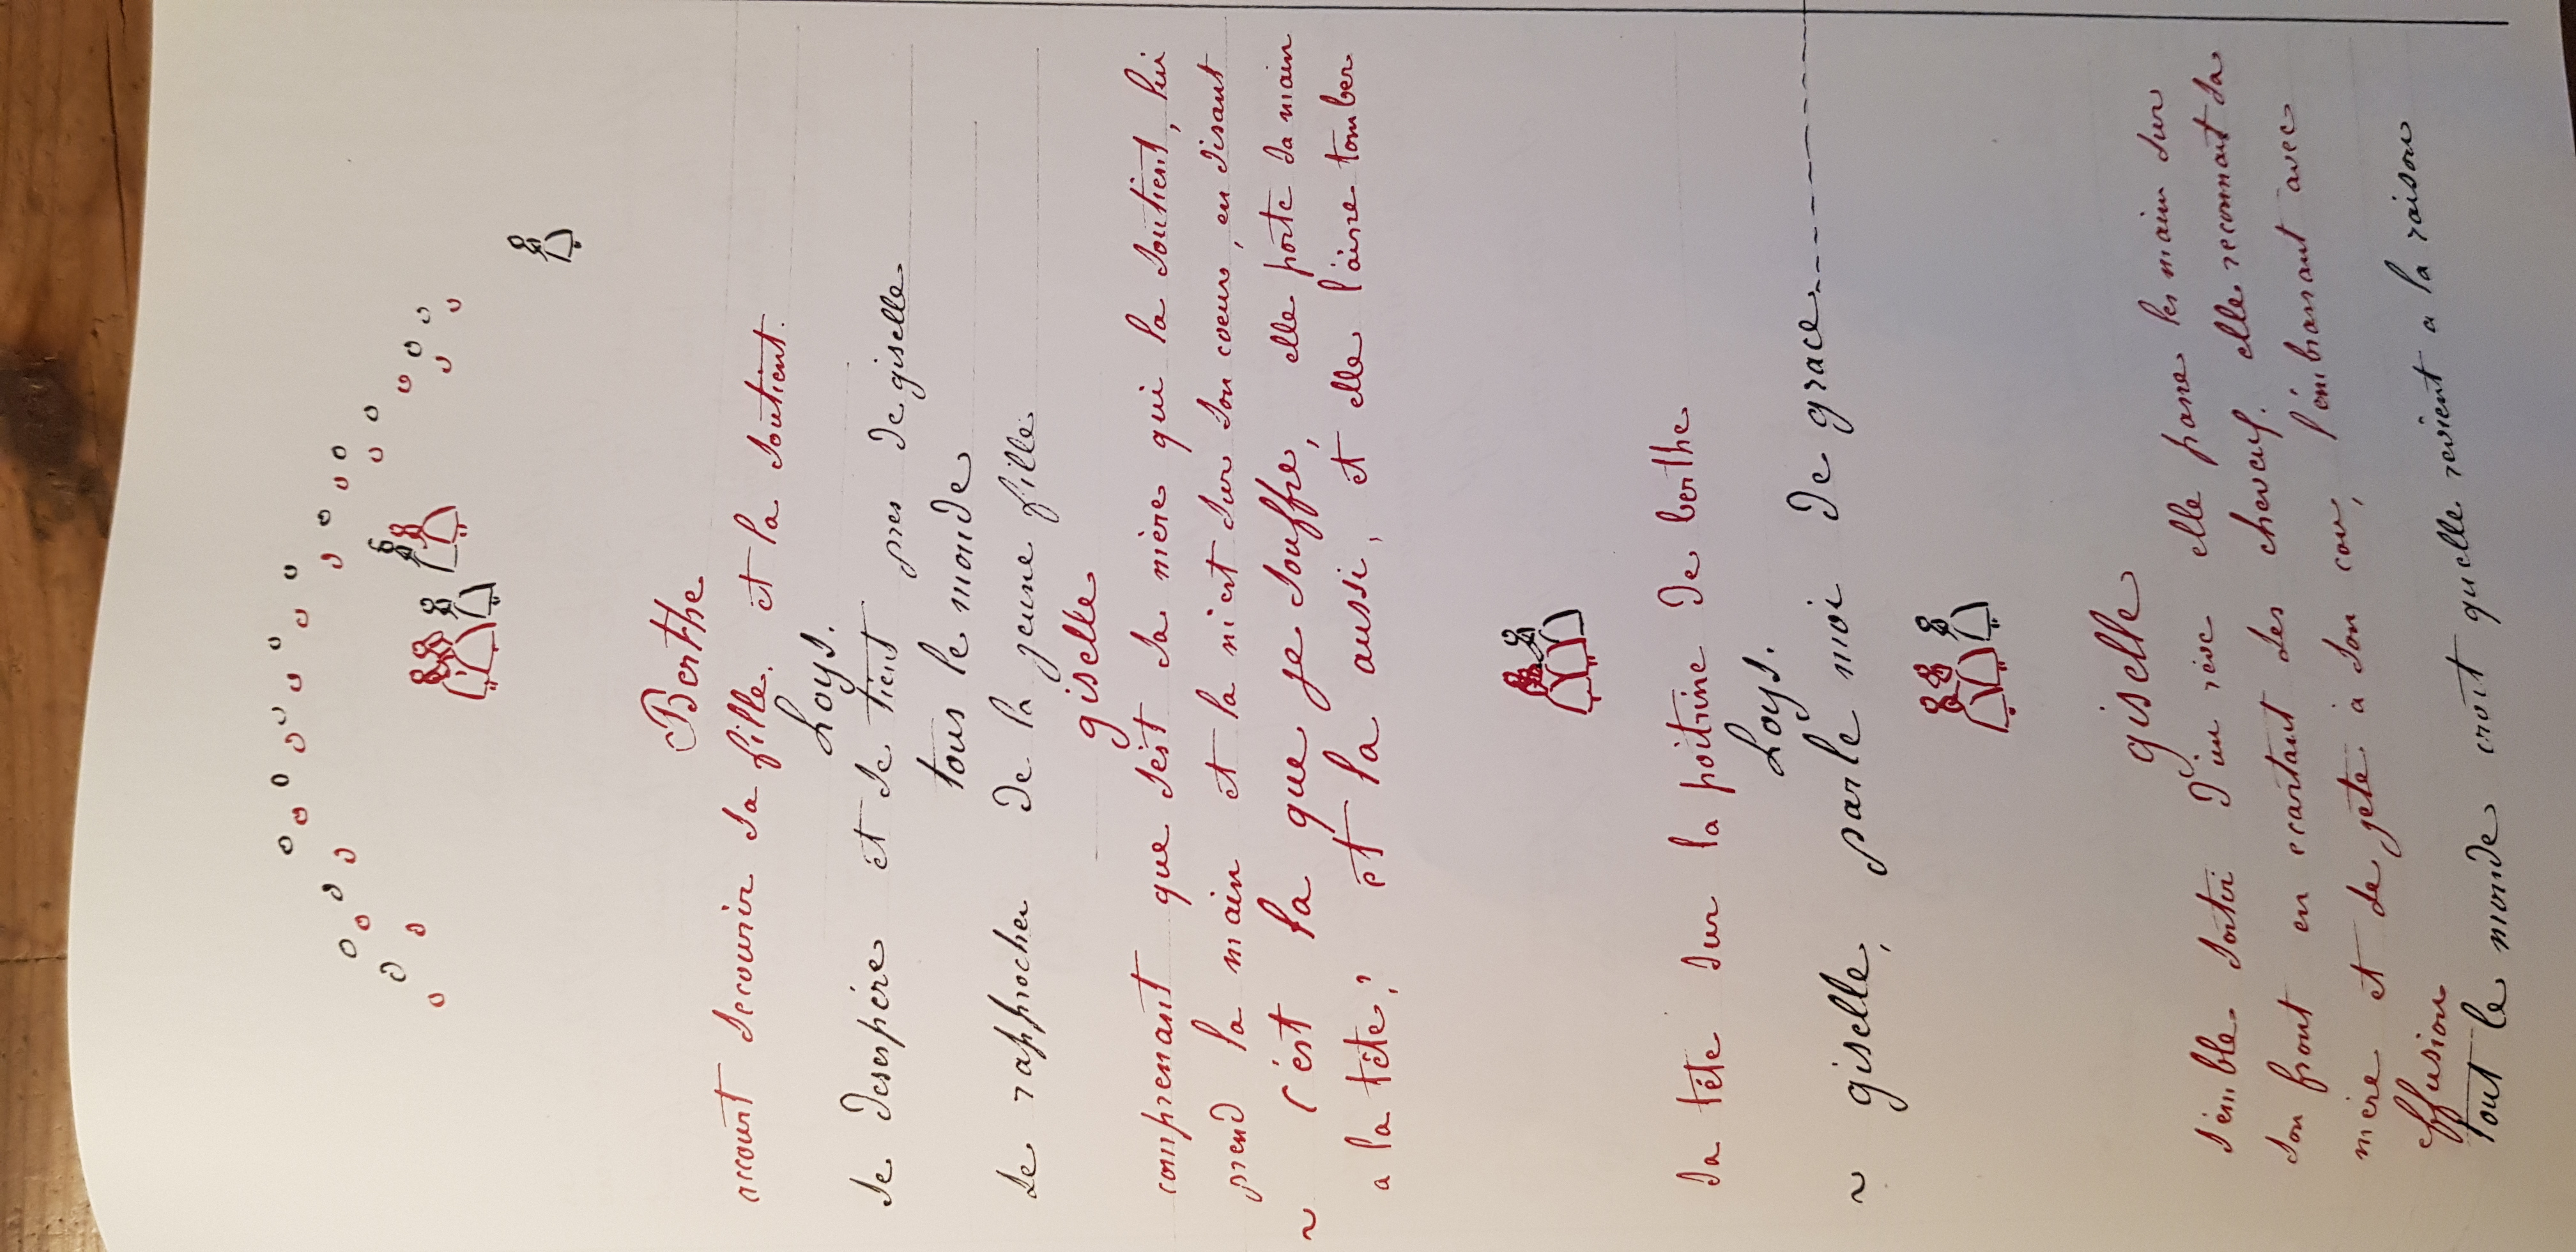 Berthe
accourt secourir sa fille. et la soutient.
Loys.
se desespére et se tient pres de giselle
tous le monde
se rapprocher de la jeune fille
giselle
comprenant que sést sa mère qui la soutient, lui
prend la main et la met sur son coeur, en disant
~ c'est la que je souffre, elle porte sa main
a la tête, et la aussi, et elle l'aisse tomber
sa tête sur la poitrine de berthe
Loys.
~ giselle, parle moi de grace
giselle
sémble sortir d'un réve elle passe les main sur
son front en ecartant ses cheveuf. elle reconnait sa
mère et se jete à son cou, l'émbrassant avec
effusion
tout le monde croit quelle revient a la raison